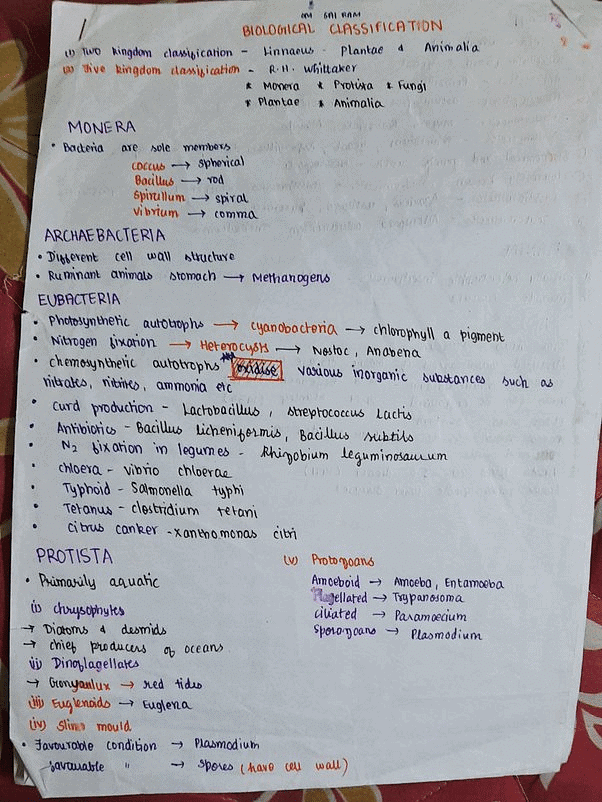 OM SAI RAM
BIOLOGICAL CLASSIFICATION
(i) Two kingdom classification - Linnaeus - Plantae & Animalia
(ii) Five kingdom classification - R.H. Whittaker
* Monera * Protista * Fungi
* Plantae * Animalia
MONERA
• Bacteria are sole members
coccus → spherical
Bacillus → rod
Spirillum → spiral
Vibrium → comma
ARCHAEBACTERIA
• Different cell wall structure
• Ruminant animals stomach → Methanogens
EUBACTERIA
• Photosynthetic autotrophs → cyanobacteria → chlorophyll a pigment
• Nitrogen fixation → Heterocysts → Nostoc, Anabena
• chemosynthetic autotrophs oxidise various inorganic substances such as
nitrates, nitrites, ammonia etc
• Curd production - Lactobacillus, Streptococcus lactis
• Antibiotics - Bacillus licheniformis, Bacillus subtils
• N2 fixation in legumes - Rhizobium leguminosaurum
• chloera - vibrio chloerae
• Typhoid - Salmonella typhi
• Tetanus - clostridium tetani
• Citrus canker - xanthomonas citri
PROTISTA
• Primarily aquatic
(i) chrysophytes
→ Diatoms & desmids
→ chief producers of oceans
(ii) Dinoflagellates
→ Gonyaulux → red tides
(iii) Euglenoids → Euglena
(iv) Slime mould
• Favourable condition → Plasmodium
favourable " → Spores (have cell wall)
(v) Protozoans
Amoeboid → Amoeba, Entamoeba
Flagellated → Trypanosoma
ciliated → Paramoecium
Sporozoans → Plasmodium